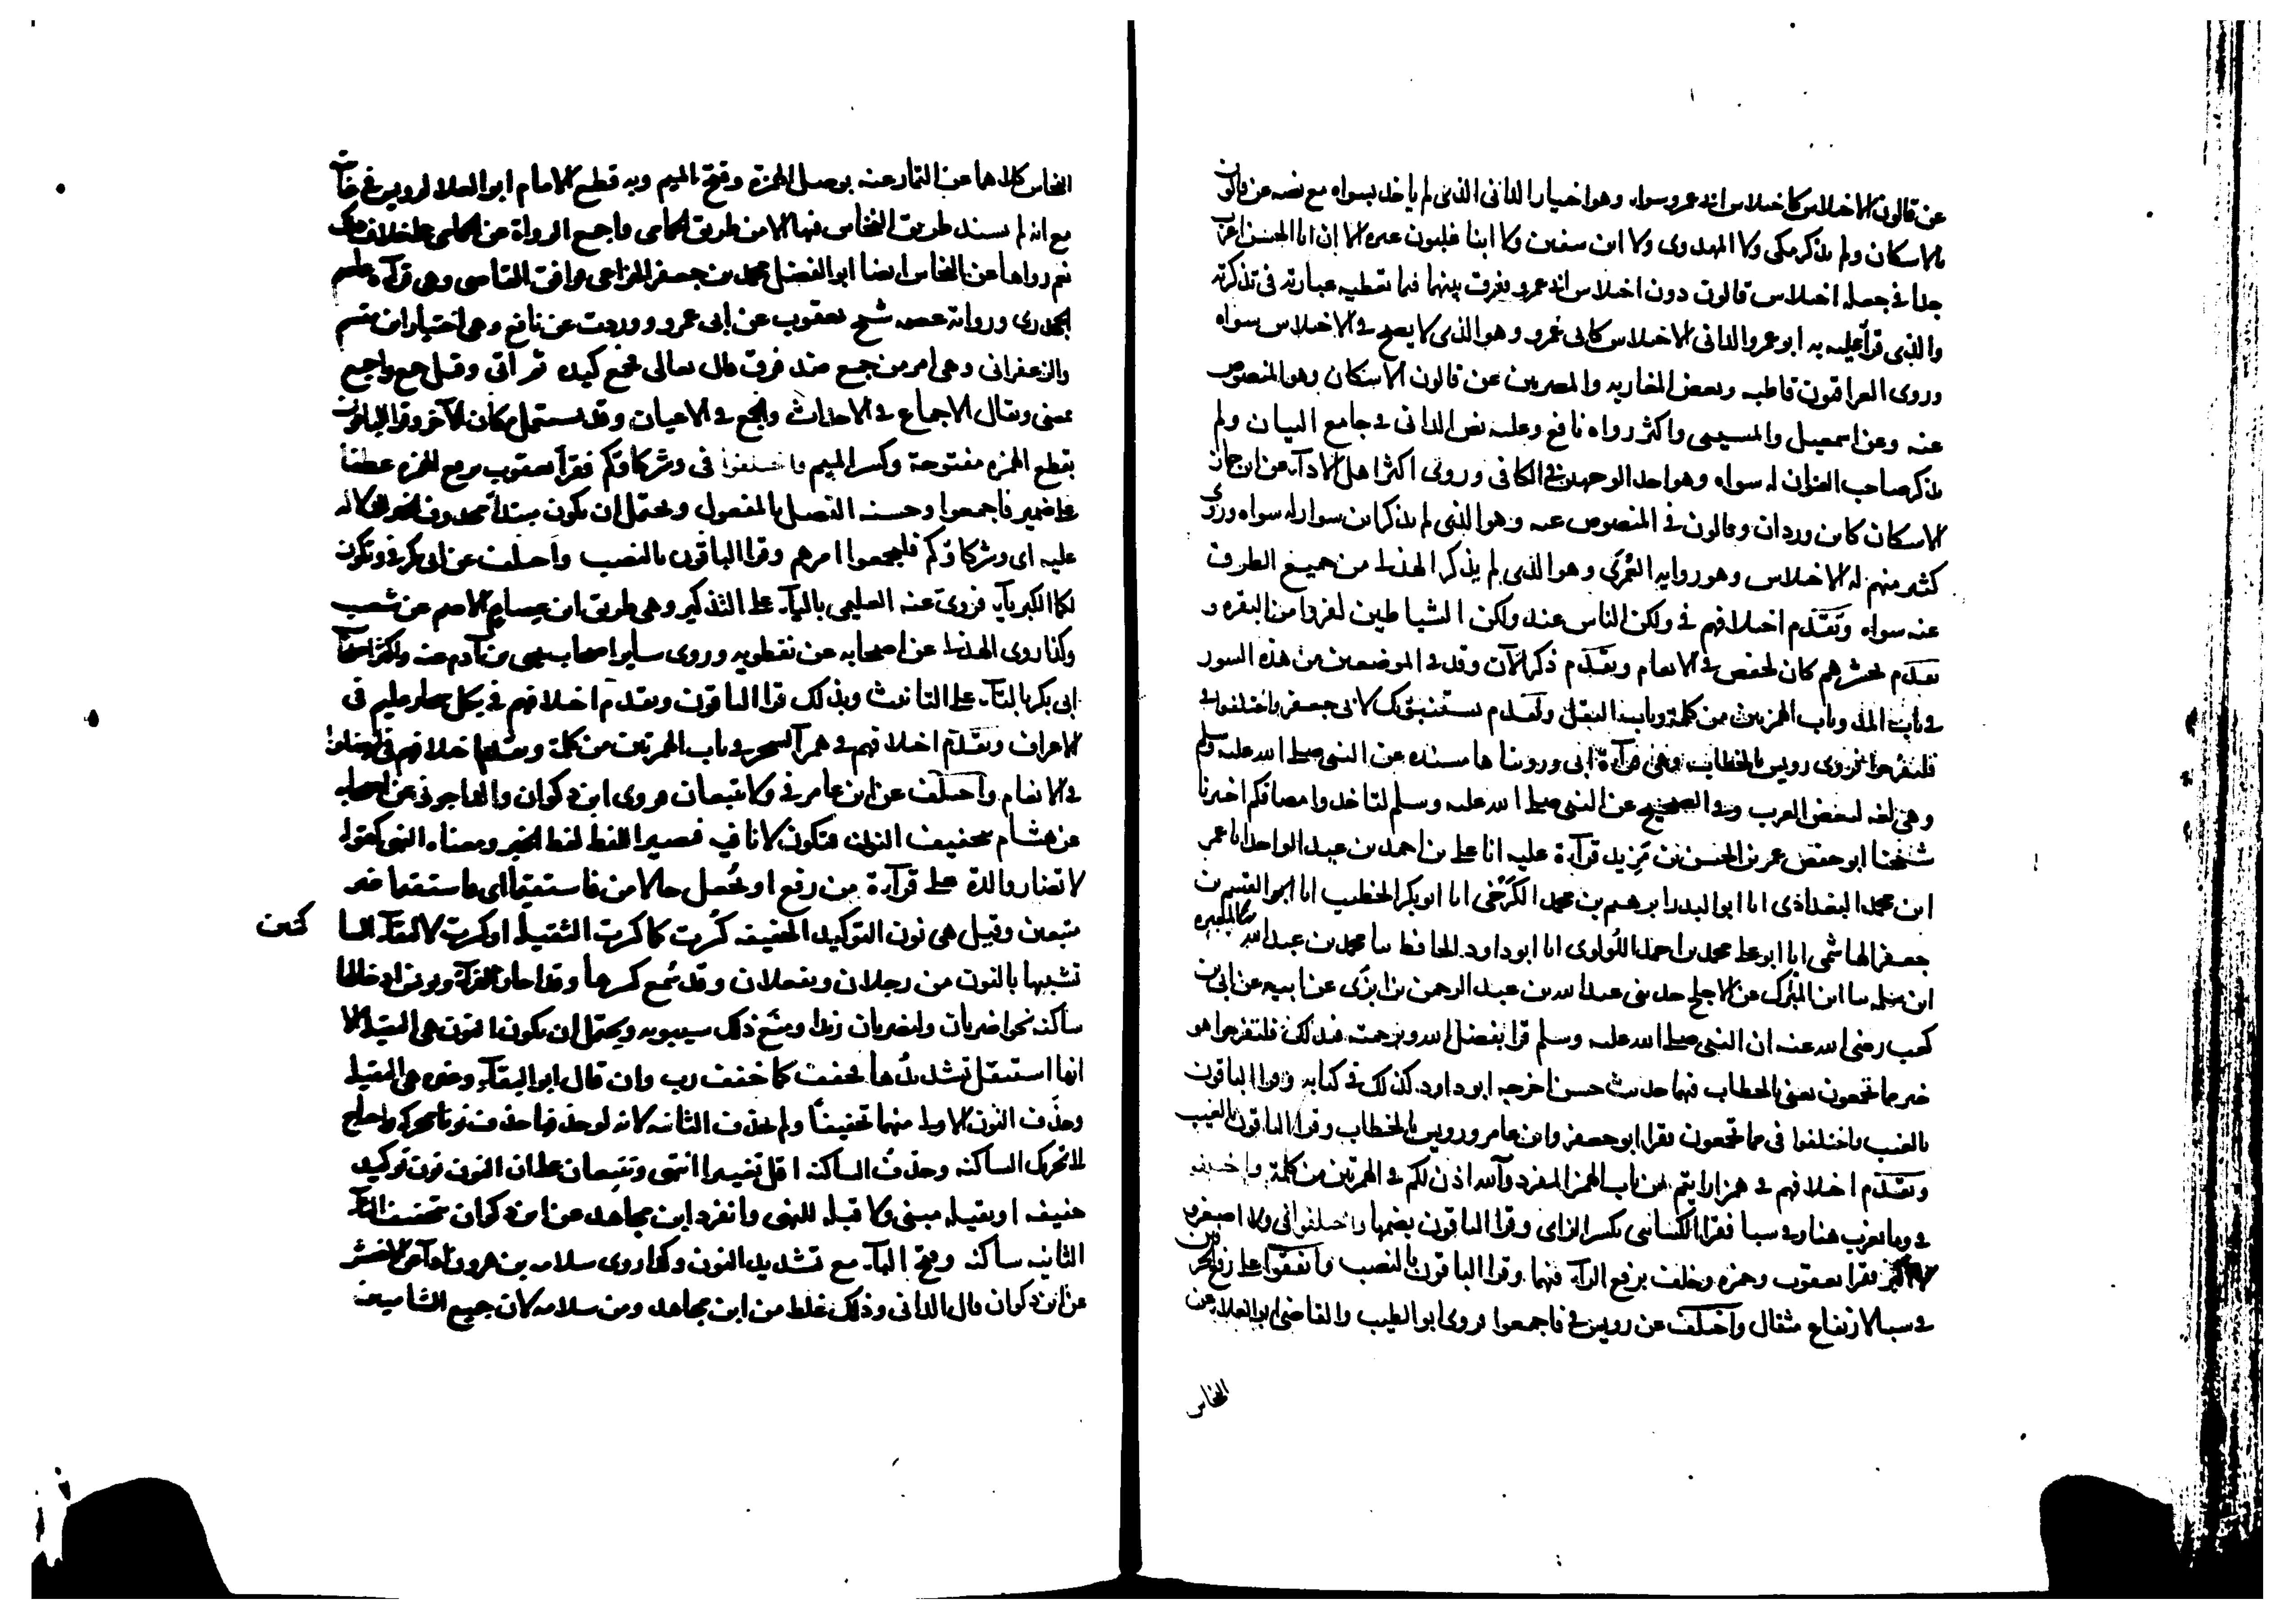 عن قالون الاختلاس كاختلاس ابى عمرو سواء وهو اختيار الدانى الذى لم ياخذ بسواه مع نصه عن قالون
بالاسكان ولم يذكر مكى ولا المهدوى ولا ابن سفين ولا ابنا غلبون غيره الا ان ابا الحسن اغرب
جدا فى جعله اختلاس قالون دون اختلاس ابى عمرو ففرق بينهما فيما تعطيه عبارته فى تذكرته
والذى قرأ عليه به ابو عمرو الدانى الاختلاس كابى عمرو وهو الذى لا يصح فى الاختلاس سواه
وروى العراقيون قاطبه وبعض المغاربه والمصريين عن قالون الاسكان وهو المنصوص
عنه وعن اسمعيل والمسيبى واكثر رواه نافع وعليه نص الدانى فى جامع البيان ولم
يذكر صاحب العنوان له سواه وهو احد الوجهين فى الكافى وروى اكثر اهل الادآء عن ابن جماز
الاسكان كابن وردان وقالون فى المنصوص عنه وهو الذى لم يذكر ابن سوار له سواه وروى
كثير منهم له الاختلاس وهو روايه العُمَرى وهو الذى لم يذكر الهذلى من جميع الطرق
عنه سواه وتَقَدّم اختلافهم فى ولكن الناس عند ولكن الشياطين كفروا من البقره و
تقدّم نحشرهم كان لحفص فى الانعام وتقدّم ذكر الآن وقد فى الموضعين من هذه السور
فى باب المد وباب الهمزتين من كلمة وباب النقل وتقدم يستنبؤنك لابى جعفر واختلفوا فى
فليفرحوا فروى رويس بالخطاب وهى قرآءة ابى ورويناها مسنده عن النبى صلى الله عليه وسلم
وهى لغه لبعض العرب وفى الصحيح عن النبى صلى الله عليه وسلم لتاخذوا مصافكم اخبرنا
شيخنا ابو حفص عمر بن الحسن بن مَزِيد قرآءة عليه انا على بن احمد بن عبد الواحد انا عمر
ابن محمد البغداذى انا ابو البدر ابرهيم بن محمد الكرَخى انا ابو بكر الخطيب انا ابو القسم بن
جعفر الهاشمى انا ابو على محمد بن احمد اللُولوى انا ابو داود الحافظ ثنا محمد بن عبد الله ثنا المغيره
ابن سلمه ثنا ابن المُبرك عن الاجلح حدثنى عبد الله بن عبد الرحمن بن ابزى عن ابيه عن ابى بن
كعب رضى الله عنه ان النبى صلى الله عليه وسلم قرا بفضل الله وبرحمته فبذلك فلتفرحوا هو
خير مما تجمعون يعنى بالخطاب فيهما حديث حسن اخرجه ابو داود كذلك فى كتابه وقرا الباقون
بالغيب واختلفوا فى مما تجمعون فقرا ابو جعفر وابن عامر ورويس بالخطاب وقرا الباقون بالغيب
وتقدّم اختلافهم فى همز ارايتم من باب الهمز المفرد وآلله اذن لكم فى الهمزتين من كلمة واختلفوا
فى وما يعزب هنا وفى سبا فقرا الكسائى بكسر الزاى وقرا الباقون بضمها واختلفوا فى ولا اصغر من
ولا اكبر فقرا يعقوب وحمزه وخلف برفع الرآء فيهما وقرا الباقون بالنصب واتفقوا على رفع الحرفين
فى سبا لارتفاع مثقال واختلف عن رويس فى فاجمعوا فروى ابو الطيب والقاضى ابو العلا عن
النخاس
النخاس كلاهما عن التمار عنه بوصل الهمزة وفتح الميم وبه قطع الامام ابو العلا لرويس فى غايته
مع انه لم يسند طريق النخاس فيها الا من طريق الحمامى واجمع الرواة عن الحمامى على خلاف ذلك
نعم رواها عن النخاس ايضا ابو الفضل محمد بن جعفر الخزاعى ووافق القاضى وهى قرآءه عاصم
الجحدرى وروايه عصمه شيخ يعقوب عن ابى عمرو ووردت عن نافع وهى اختيار ابن مقسم
والزعفرانى وهى امر من جمع ضد فرق قال تعالى فجمع كيده ثم آتى وقيل جمع واجمع
بمعنى ويقال الاجماع فى الاحداث والجمع فى الاعيان وقد يستعمل مكان الآخر وقرا الباقون
بقطع الهمزه مفتوحة وكسر الميم واختلفوا فى وشركاؤكم فقرآ يعقوب برفع الهمزه عطفا
على ضمير فاجمعوا وحسنه الفصل بالمفعول ويحتمل ان يكون مبتدأ محذوف الخبر للدلاله
عليه اى وشركاؤكم فليجمعوا امرهم وقرا الباقون بالنصب واختلف عن ابى بكر فى وتكون
لكما الكبريآء فروى عنه العليمى باليآء على التذكير وهى طريق ابن عصام الاصم عن شعيب
وكذا روى الهذلى عن اصحابه عن نفطويه وروى ساير اصحاب يحيى بن آدم عنه واكثر اصحاب
ابى بكر بالتآء على التانيث وبذلك قرا الباقون وتقدم اختلافهم فى بكل سحار عليم فى
الاعراف وتقدّم اختلافهم فى همز آلسحر فى باب الهمزتين من كلمة وتقدم اختلافهم فى ليضلوا
فى الانعام واختلف عن ابن عامر فى ولا تتبعان فروى ابن ذكوان والداجونى عن اصحابه
عن هشام بتخفيف النون فتكون لا نافيه فيصير اللفظ لفظ الخبر ومعناه النهى كقوله
لا تضار والدة على قرآءة من رفع او يُجعل حالا من فاستقيما اى فاستقيما غير
متبعين وقيل هى نون التوكيد الخفيفه كُسرت كما كسرت الثقيله او كسرت لالتقآء السا
كنين
تشبيها بالنون من رجلان ويفعلان وقد سُمع كسرها وقد اجاز الفرآء ويونس ادخالها
ساكنه نحو اضربان وليضربان زيدا ومنع ذلك سيبويه ويحتمل ان يكون النون هى الثقيله الا
انها استثقل تشديدُها فخففت كما خففت رب وان قال ابو البقآء وغيره هى الثقيله
وحذف النون الاولى منهما تخفيفاً ولم تحذف الثانيه لانه لو حذفها حذف نونا محركه واحتاج
لتحريك الساكنه وحذفُ الساكنه اقل تغييرا انتهى وتتبعان على ان النون نون توكيد
خفيفه او ثقيله مبنى ولا قبله للنهى وانفرد ابن مجاهد عن ابن ذكوان بتخفيف التآء
الثانيه ساكنه وفتح البآء مع تشديد النون وكذا روى سلامه بن هرون ادآء عن الاخفش
عن ابن ذكوان قال الدانى وذلك غلط من ابن مجاهد ومن سلامه لان جميع الشاميين